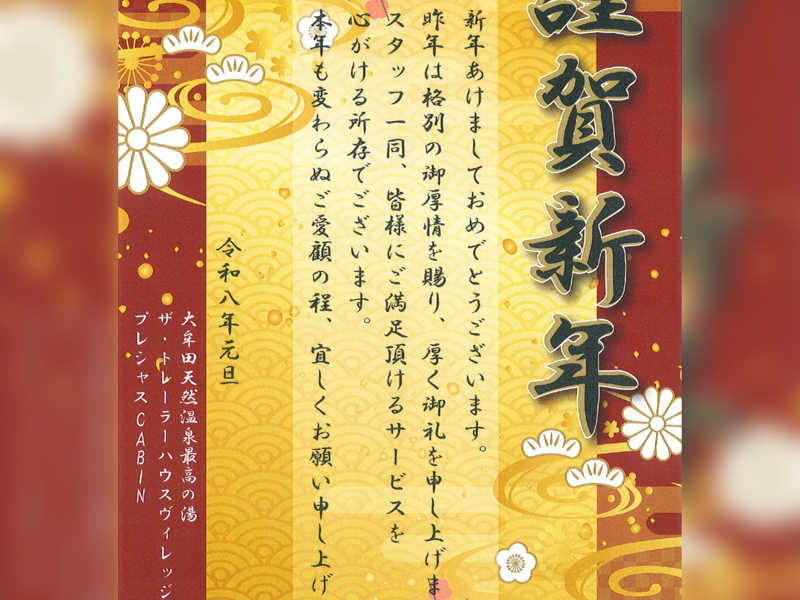 謹賀新年
新年あけましておめでとうございます。
昨年は格別の御厚情を賜り、厚く御礼を申し上げま
スタッフ一同、皆様にご満足頂けるサービスを
心がける所存でございます。
本年も変わらぬご愛顧の程、宜しくお願い申し上げ
令和八年元旦
大牟田天然温泉最高の湯
ザ・トレーラーハウスヴィレッジ
プレシャスCABIN